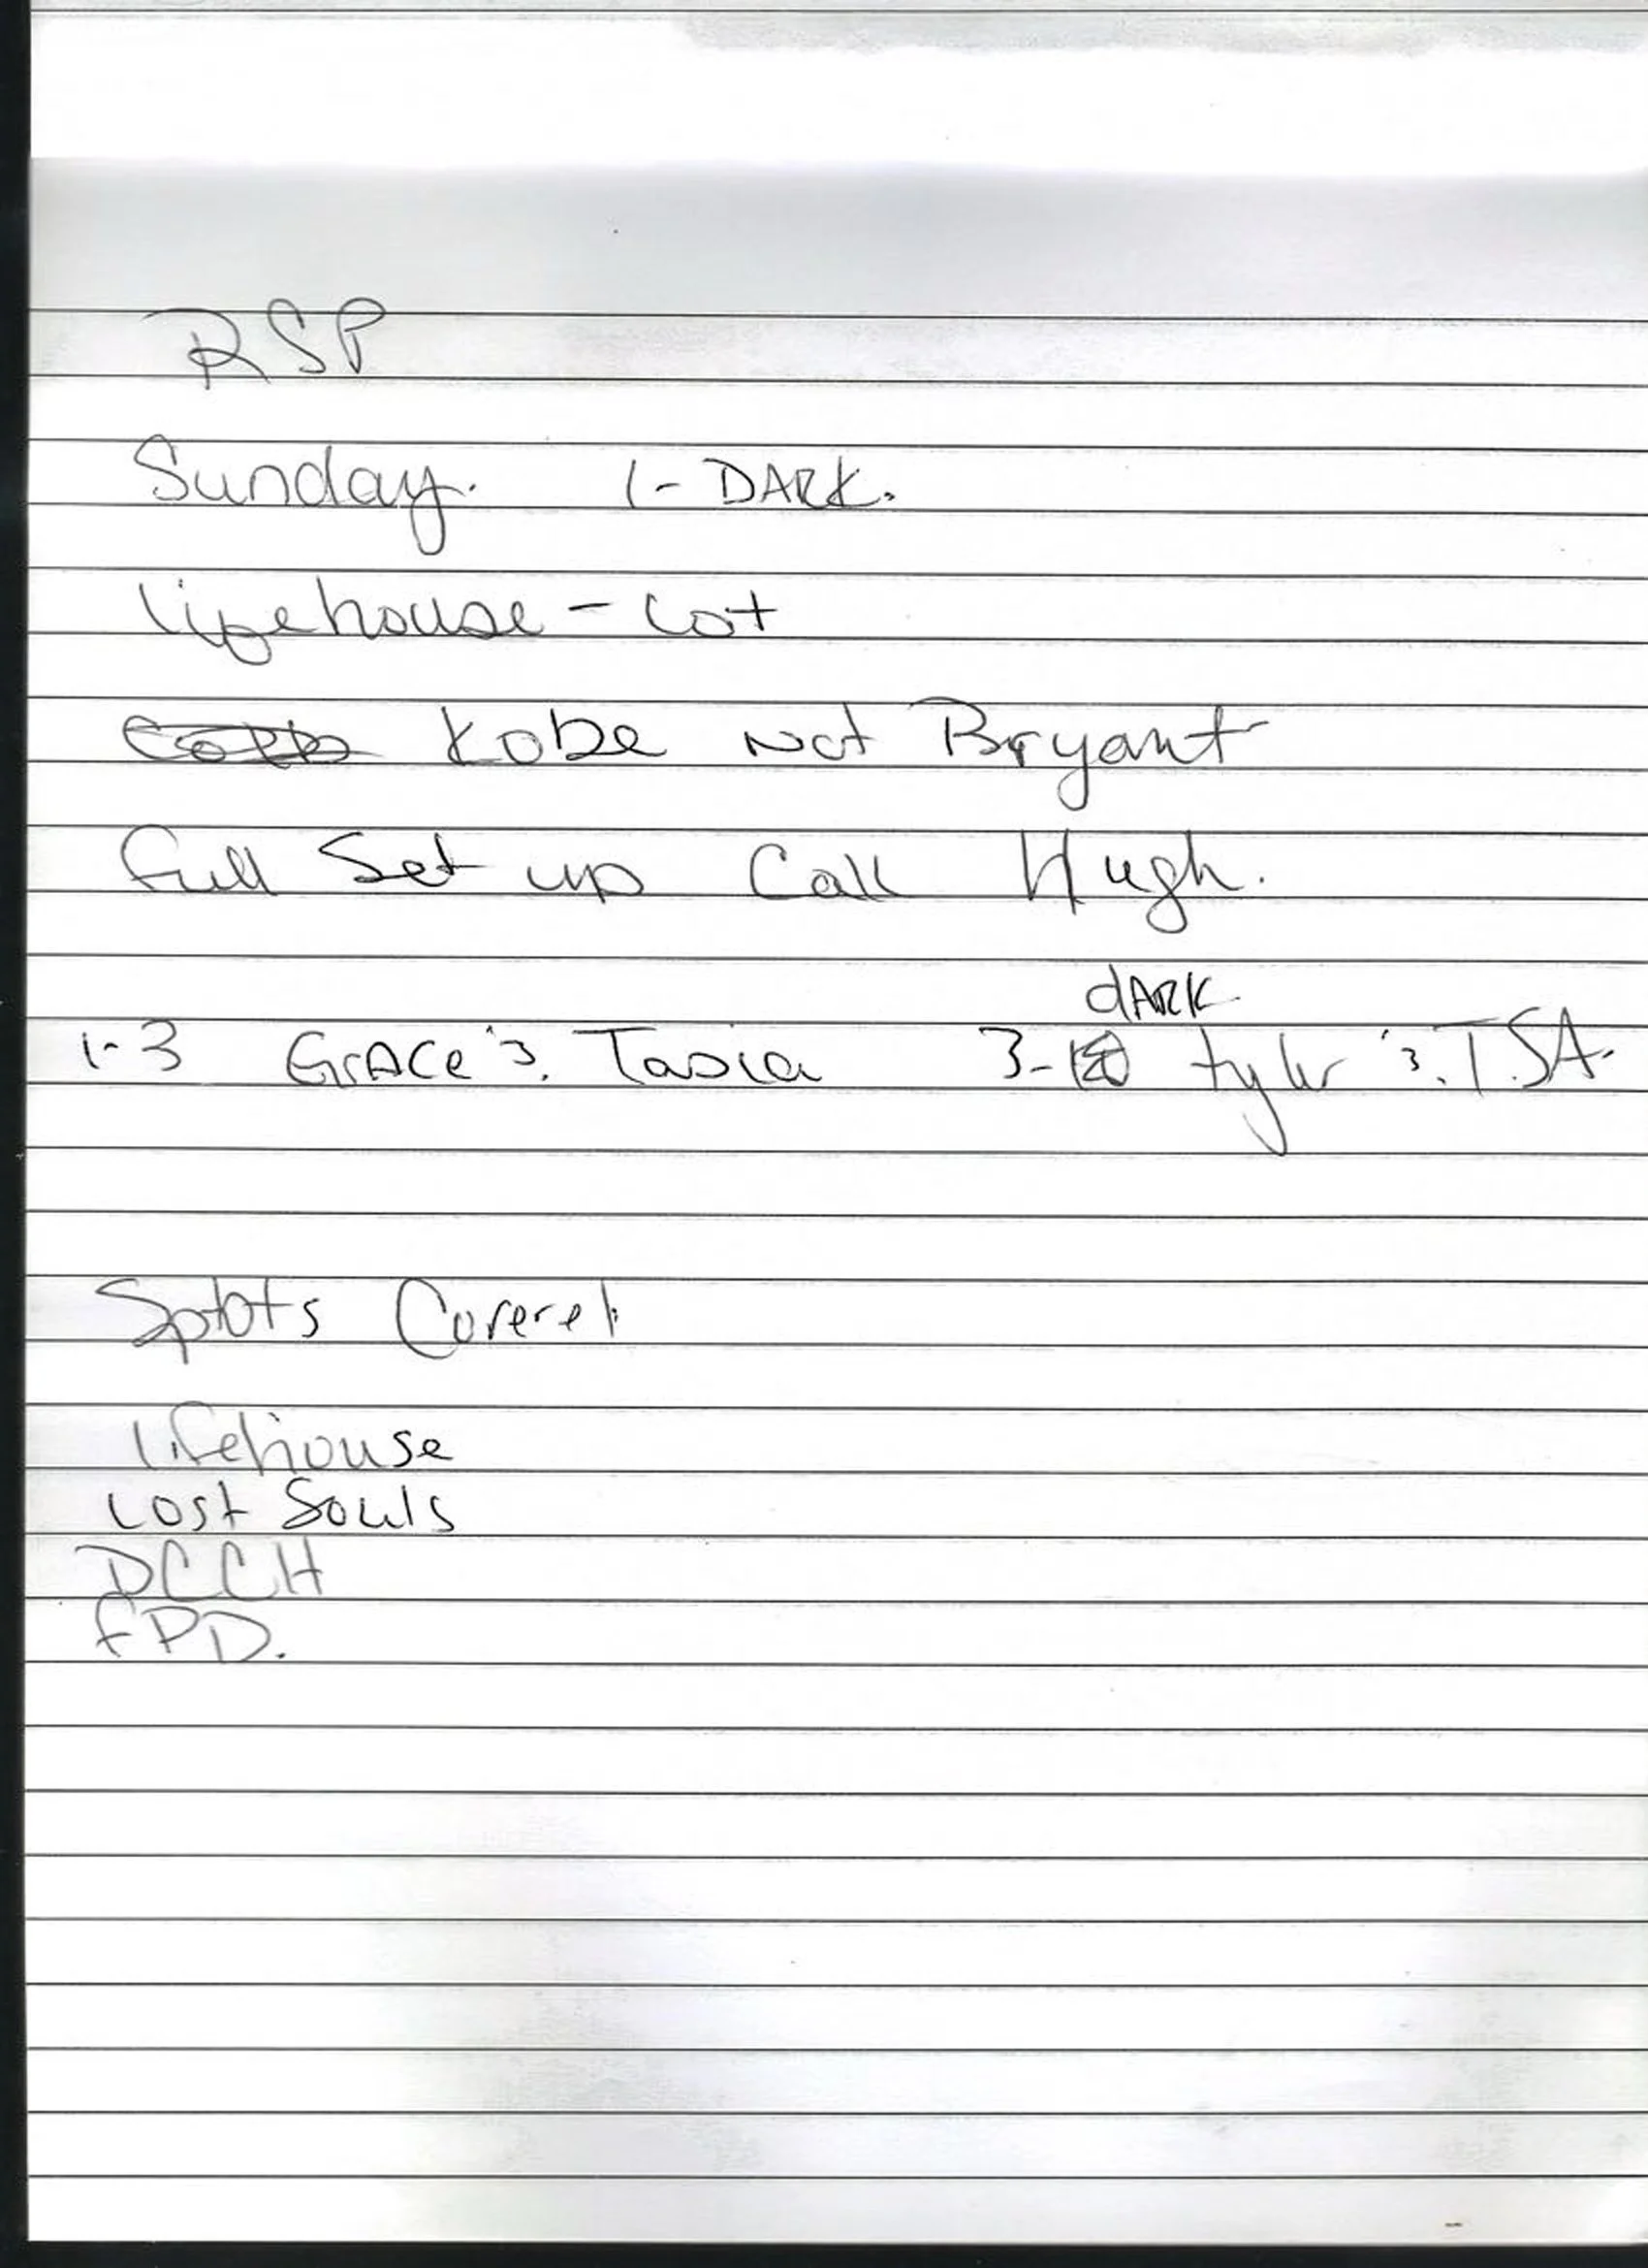 RSP
Sunday. 1- DARK.
lifehouse - Lot
Kobe Not Bryant
Full Set up Call Hugh.
dARK
1-3 GrACe 3. Tasia 3- tyler 3. T.SA.
Spots Covered
lifehouse
Lost Souls
DCCH
FPD.